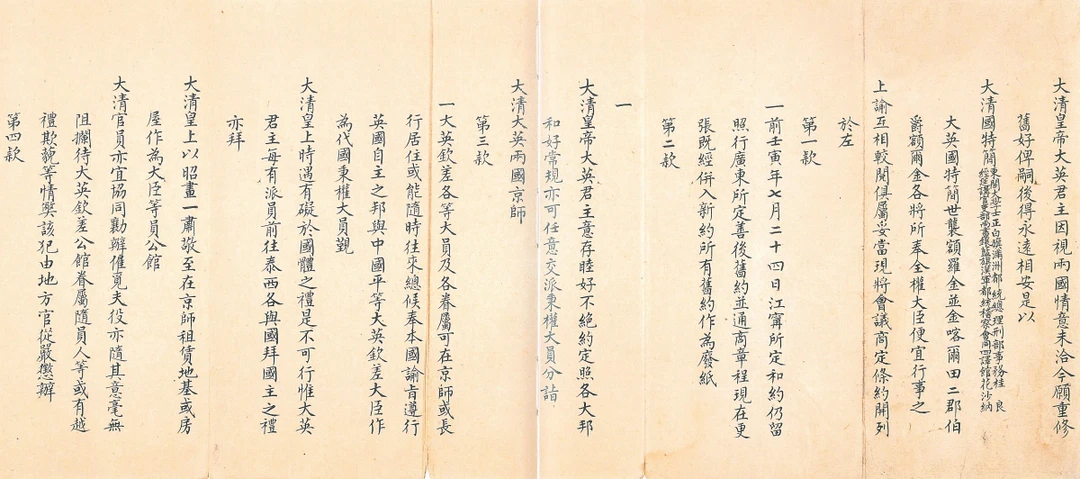 大清皇帝大英君主因視兩國情意未洽今願重修
舊好俾嗣後得永遠相安是以
大清國特簡東閣大學士正白旗滿洲都統總理刑部事務桂良
經筵講官吏部尚書鑲藍旗漢軍都統稽察會同四譯館花沙納
大英國特簡世襲額羅金並金喀爾田二郡伯
爵額爾金各將所奉全權大臣便宜行事之
上諭互相較閱俱屬妥當現將會議商定條約開列
於左
第一款
一前壬寅年七月二十四日江甯所定和約仍留
照行廣東所定善後舊約並通商章程現在更
張既經併入新約所有舊約作為廢紙
第二款
一
大清皇帝大英君主意存睦好不絕約定照各大邦
和好常規亦可任意交派秉權大員分詣
大清大英兩國京師
第三款
一大英欽差各等大員及各眷屬可在京師或長
行居住或能隨時往來總候奉本國諭旨遵行
英國自主之邦與中國平等大英欽差大臣作
為代國秉權大員覲
大清皇上時遇有礙於國體之禮是不可行惟大英
君主每有派員前往泰西各與國拜國主之禮
亦拜
大清皇上以昭畫一肅敬至在京師租賃地基或房
屋作為大臣等員公館
大清官員亦宜協同勷辦僱覓夫役亦隨其意毫無
阻攔待大英欽差公館眷屬隨員人等或有越
禮欺藐等情獘該犯由地方官從嚴懲辦
第四款